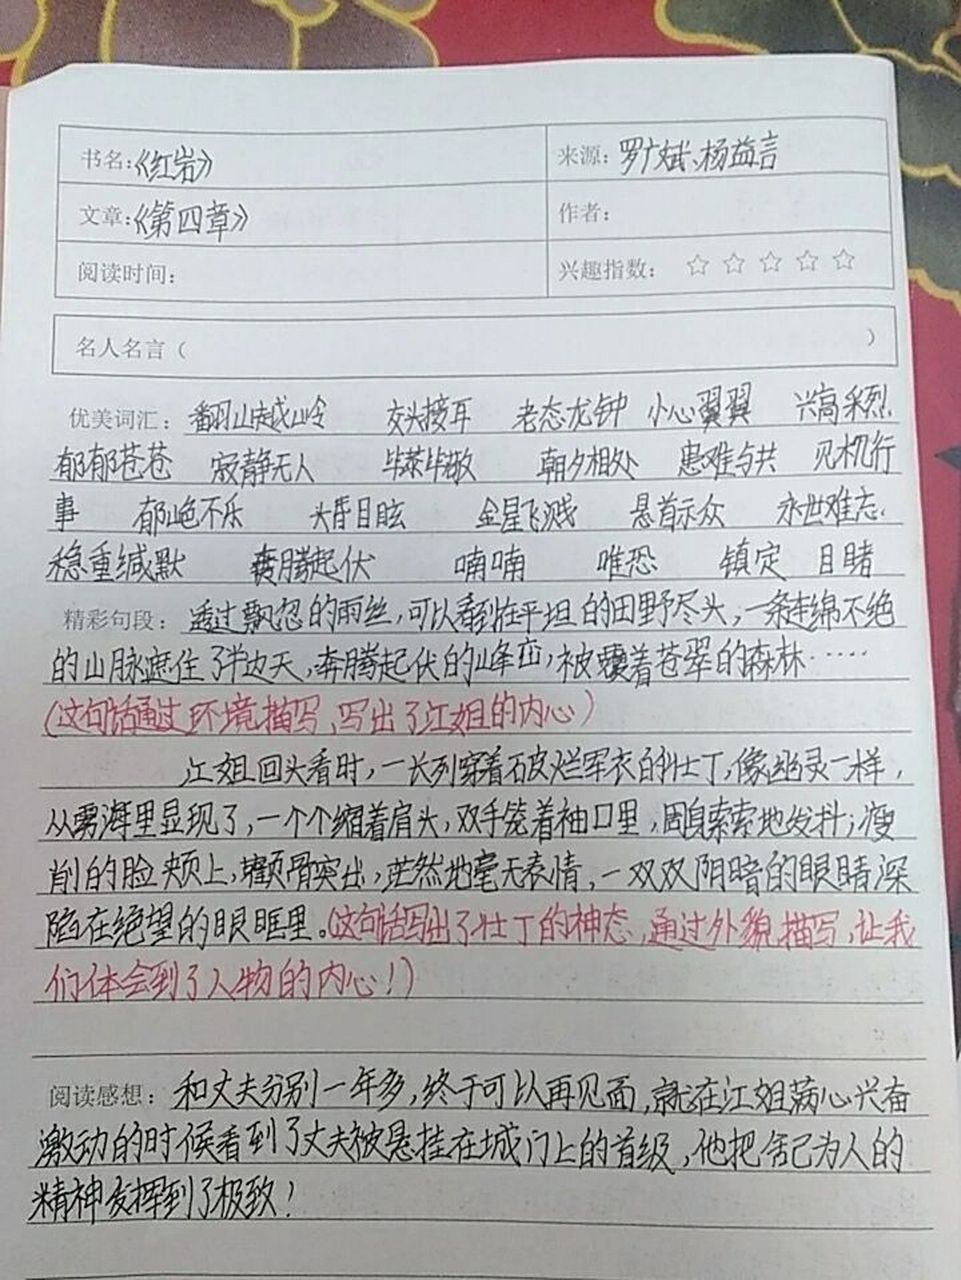 书名:《红岩》 来源: 罗广斌、杨益言
文章:《第四章》 作者:
阅读时间: 兴趣指数: ☆ ☆ ☆ ☆ ☆
名人名言( )
优美词汇: 翻山越岭 交头接耳 老态龙钟 小心翼翼 兴高采烈
郁郁苍苍 寂静无人 毕恭毕敬 朝夕相处 患难与共 见机行
事 郁郁不乐 头昏目眩 金星飞溅 悬首示众 永世难忘
稳重缄默 奔腾起伏 喃喃 唯恐 镇定 目睹
精彩句段: 透过飘忽的雨丝,可以看到在平坦的田野尽头,一条连绵不绝
的山脉遮住了半边天,奔腾起伏的峰峦,被覆着苍翠的森林……
(这句话通过环境描写,写出了江姐的内心)
江姐回头看时,一长列穿着破烂军衣的壮丁,像幽灵一样,
从雾海里显现了,一个个缩着肩头,双手笼着袖口里,周身索索地发抖;瘦
削的脸夹页上,颧骨突出,茫然地毫无表情,一双双阴暗的眼睛深
陷在绝望的眼眶里。(这句话写出了壮丁的神态,通过外貌描写,让我
们体会到了人物的内心!)
阅读感想: 和丈夫分别一年多,终于可以再见面,就在江姐满心兴奋
激动的时候看到了丈夫被悬挂在城门上的首级,他把舍己为人的
精神发挥到了极致!